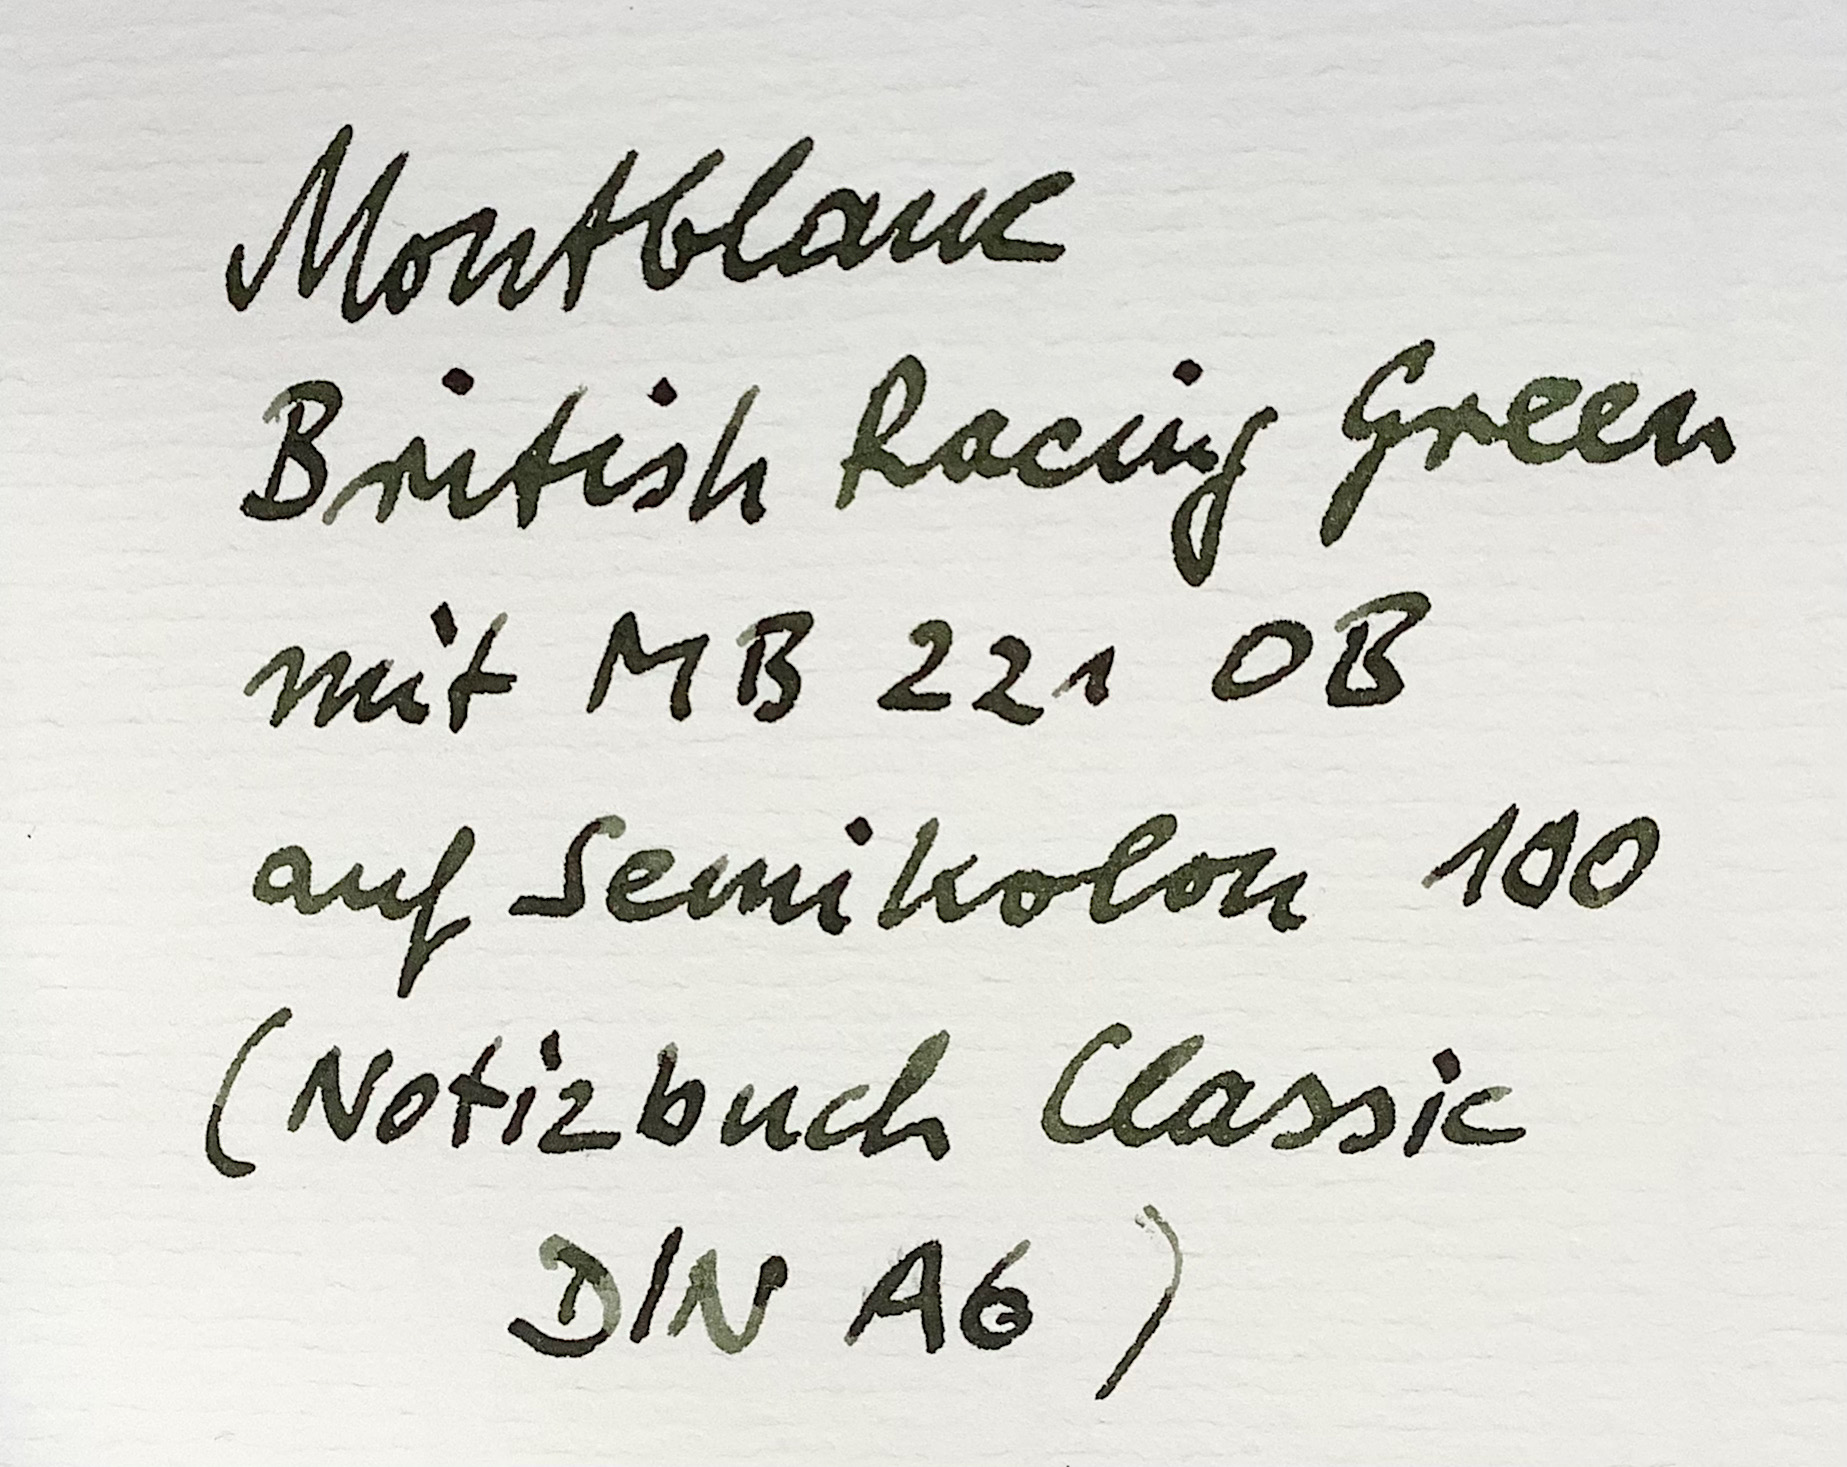 Montblanc
British Racing Green
mit MB 221 OB
auf Semikolon 100
(Notizbuch Classic
DIN A6)